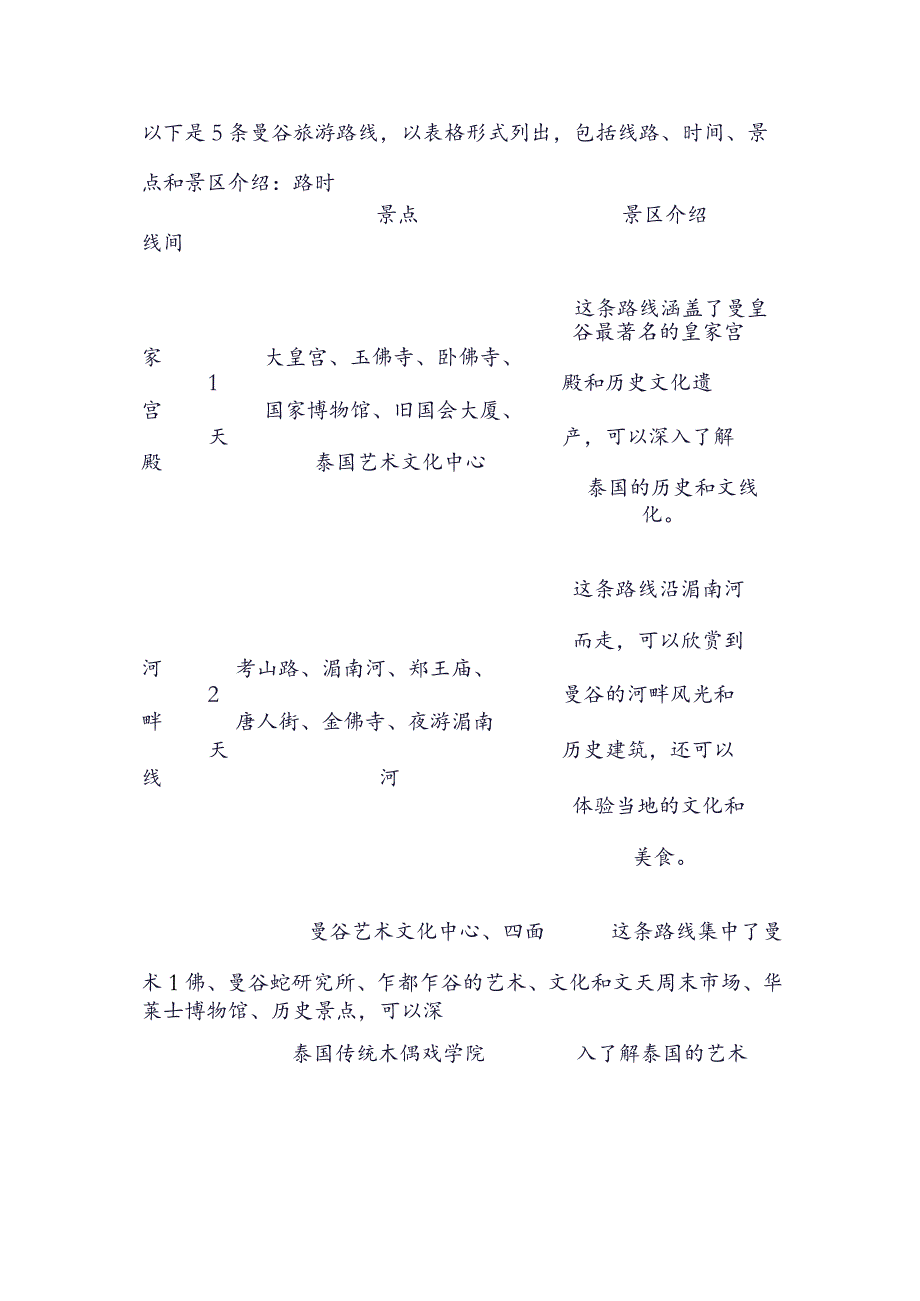 以下是5条曼谷旅游路线，以表格形式列出，包括线路、时间、景
点和景区介绍：路时
景点 景区介绍
线间
这条路线涵盖了曼皇
谷最著名的皇家宫
家 大皇宫、玉佛寺、卧佛寺、
1 殿和历史文化遗
宫 国家博物馆、旧国会大厦、
天 产，可以深入了解
殿 泰国艺术文化中心
泰国的历史和文线
化。
这条路线沿湄南河
而走，可以欣赏到
河 考山路、湄南河、郑王庙、
2 曼谷的河畔风光和
畔 唐人街、金佛寺、夜游湄南
天 历史建筑，还可以
线 河
体验当地的文化和
美食。
曼谷艺术文化中心、四面 这条路线集中了曼
术1佛、曼谷蛇研究所、乍都乍谷的艺术、文化和文天周末市场、华
莱士博物馆、历史景点，可以深
泰国传统木偶戏学院 入了解泰国的艺术